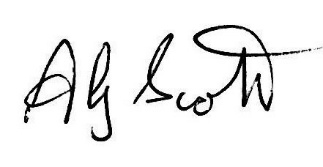 AG Scott